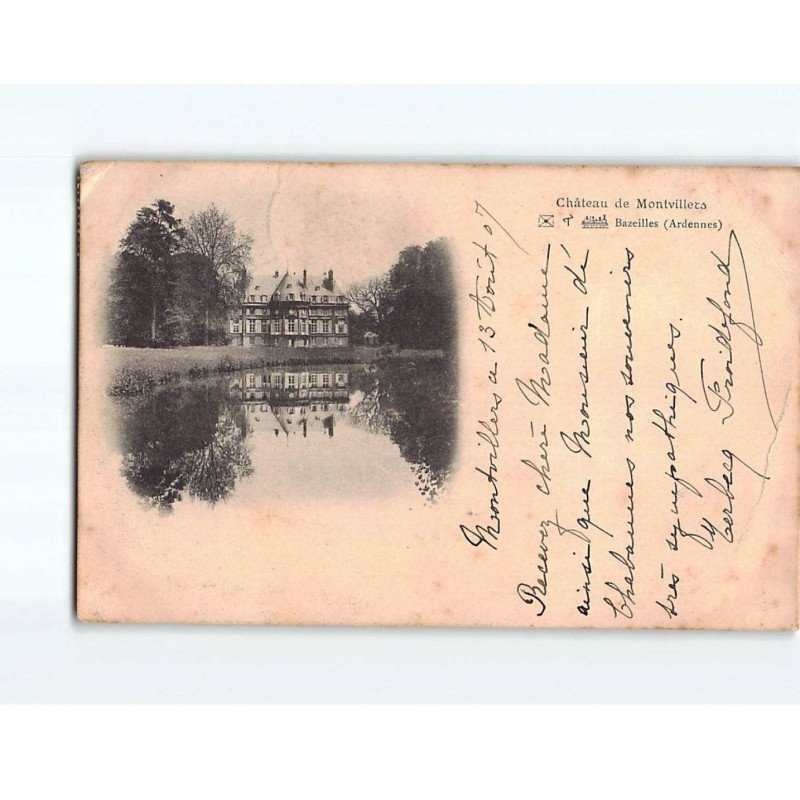 Château de Montvillers
Bazeilles (Ardennes)
Montvillers a 13 Août 07
Recevez chère Madame
ainsi que Monsieur dé
Chabannes nos souvenirs
très sympathiques.
Froidefond